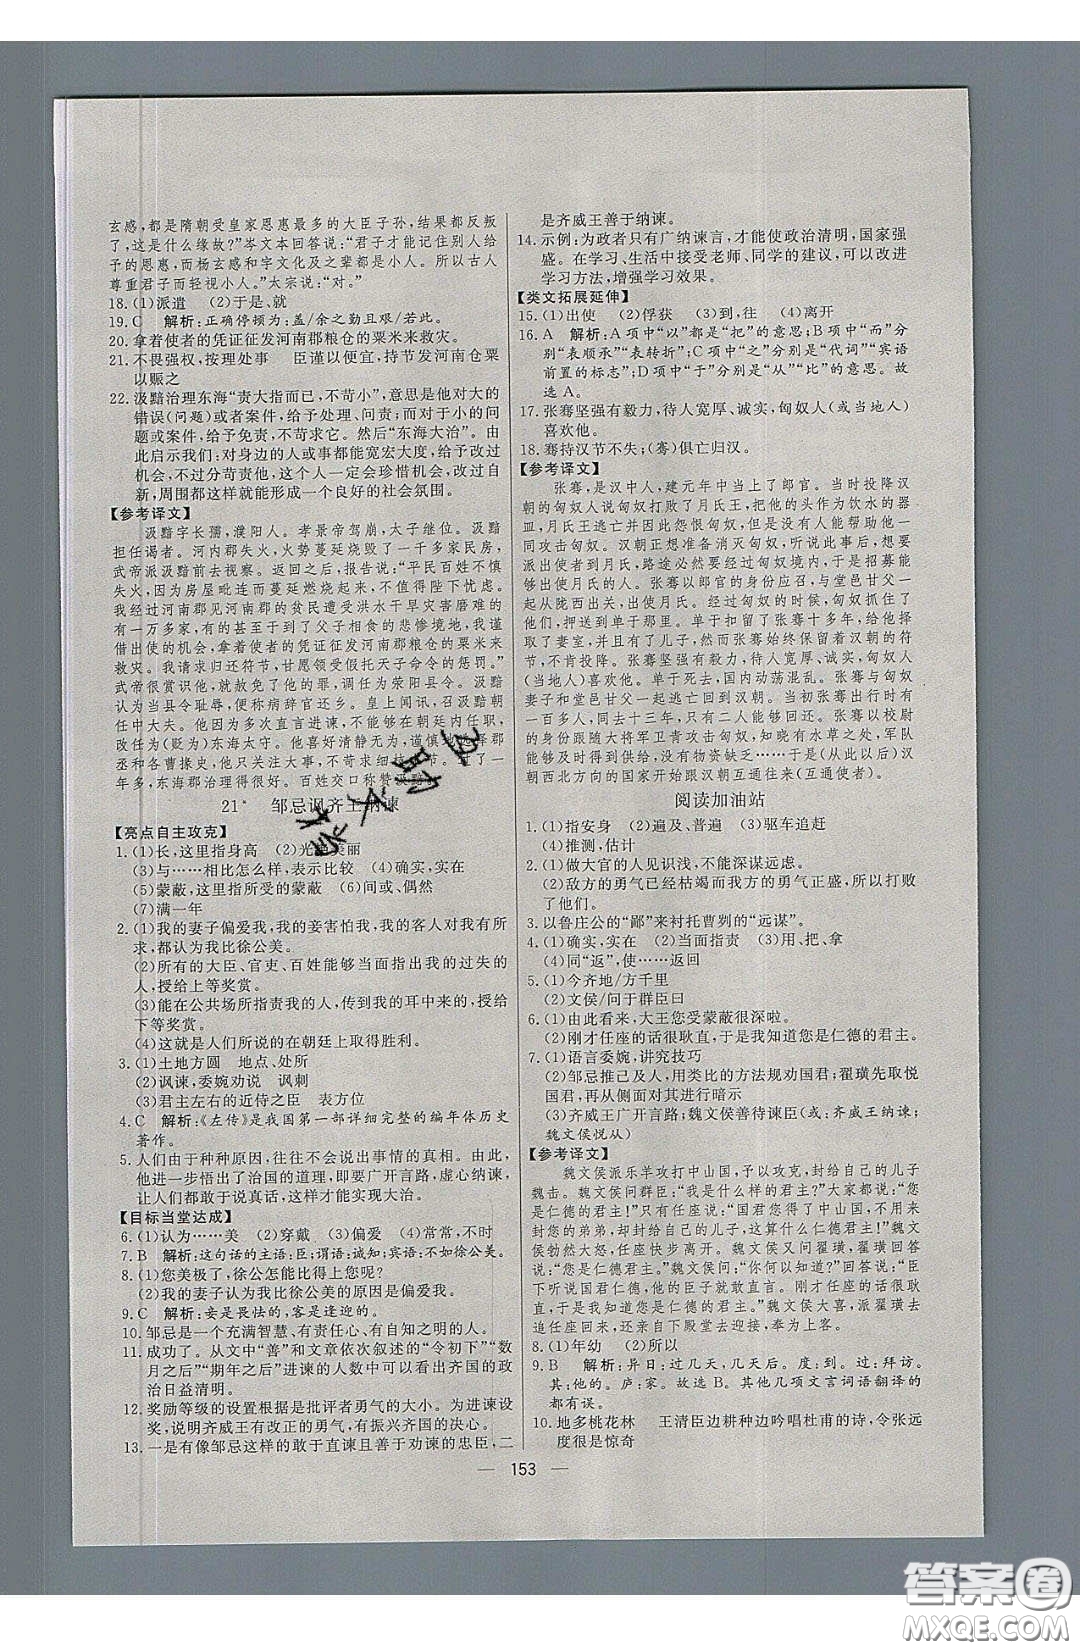 玄感,都是隋朝受皇家恩惠最多的大臣子孙,结果都反叛
了,这是什么缘故?岑文本回答说:“君子才能记住别人给
予的恩惠,而杨玄感和宇文化及之辈都是小人。所以古人
尊重君子而轻视小人。”太宗说:“对。”
18. (1)派遣 (2)于是、就
19. C 解析:正确停顿为:盖/余之勤且艰/若此。
20. 拿着使者的凭证征发河南郡粮仓的粟米来救灾。
21. 不畏强权,按理处事 臣谨以便宜,持节发河南仓粟
以赈之
22. 汲黯治理东海“责大指而已,不苛小”,意思是他对大的
错误(问题)或者案件,给予处理、问责;而对于小的问
题或案件,给予免责,不苛求它。然后“东海大治”。由
此启示我们:对身边的人或事都能宽宏大度,给予改过
机会,不过分苛责他,这个人一定会珍惜机会,改过自
新,周围都这样就能形成一个良好的社会氛围。
【参考译文】
汲黯字长孺,濮阳人。孝景帝驾崩,太子继位。汲黯
担任谒者。河内郡失火,火势蔓延烧毁了一千多家民房,
武帝派汲黯前去视察。返回后,报告说:“平民百姓不慎
失火,因为房屋毗连而蔓延燃烧起来,不值得忧虑。
我经过河南郡见河南郡的贫民遭受洪水干旱灾害磨难的
有一万多家,有的以至于到了父子相食的悲惨境地,我借
出使的机会,拿着使者的凭证征发河南郡粮仓的粟米来
救灾。我请求归还符节,甘愿领受假托天子命令的惩罚。”
武帝很赏识他,就赦免了他的罪,调任为荥阳县令。汲黯
耻于当县令,便称病辞官还乡。皇上闻讯,召汲黯朝任
中大夫。他因为多次直言进谏,不能够在朝廷内任职,
改任为(贬为)东海太守。他喜好清静无为,谨慎地选择郡
丞和各曹掾史。他只关注大事,不苛求细枝末节。一
年多,东海郡治理得很好。百姓交口称赞汲黯。
21* 邹忌讽齐王纳谏
【亮点自主攻克】
1. (1)长,这里指身高 (2)光艳美丽
(3)与……相比怎么样,表示比较 (4)确实,实在
(5)蒙蔽,这里指所受的蒙蔽 (6)间或、偶然
(7)满一年
2. (1)我的妻子偏爱我,我的妾害怕我,我的客人对我有所
求,都认为我比徐公美。
(2)所有的大臣、官吏、百姓能够当面指出我的过失的
人,授给上等奖赏。
(3)能在公共场所指责我的人,传到我的耳中来的,授给
下等奖赏。
(4)这就是人们所说的在朝廷上取得胜利。
3. (1)土地方圆 地点、处所
(2)讽谏,委婉劝说 讽刺
(3)君主左右的近侍之臣 表方位
4. C 解析:《左传》是我国第一部详细完整的编年体历史
著作。
5. 人们由于种种原因,往往不会说出事情的真相。由此,他
进一步悟出了治国的道理,即要广开言路,虚心纳谏,
让人们都敢于说真话,这样才能实现大治。
【目标当堂达成】
6. (1)认为……美 (2)穿戴 (3)偏爱 (4)常常,不时
7. B 解析:这句话的主语:臣;谓语:诚知;宾语:不如徐公美。
8. (1)您美极了,徐公怎能比得上您呢?
(2)我的妻子认为我比徐公美的原因是偏爱我。
9. C 解析:妾是畏怯的,客是逢迎的。
10. 邹忌是一个充满智慧、有责任心、有自知之明的人。
11. 成功了。从文中“善”和文章依次叙述的“令初下”“数
月之后”“期年之后”进谏的人数中可以看出齐国的政
治日益清明。
12. 奖励等级的设置根据是批评者勇气的大小。这样的设
奖,说明齐威王有改正的勇气,有振兴齐国的决心。
13. 一是有像邹忌这样的敢于直谏且善于劝谏的忠臣,二
是齐威王善于纳谏。
14. 示例:为政者只有广纳谏言,才能使政治清明,国家强
盛。在学习、生活中接受老师、同学的建议,可以改进
学习方法,增强学习效果。
【类文拓展延伸】
15. (1)出使 (2)俘获 (3)到,往 (4)离开
16. A 解析:A项中“以”都是“把”的意思;B项中“而”分
别“表顺承”“表转折”;C项中“之”分别是“代词”“宾语
前置的标志”;D项中“于”分别是“从”“比”的意思。故
选 A。
17. 张骞坚强有毅力,待人宽厚、诚实,匈奴人(或当地人)
喜欢他。
18. 骞持汉节不失;(骞)俱亡归汉。
【参考译文】
张骞,是汉中人,建元年中当上了郎官。当时投降汉
朝的匈奴人说匈奴打败了月氏王,把他的头作为饮水的器
皿,月氏王逃亡并因此怨恨匈奴,但没有人能够和他们一
同攻击匈奴。汉朝正想准备消灭匈奴,听说此事,想要
派出使者去月氏,路途必然要经过匈奴境内,于是招募能
够出使月氏的人。张骞以郎官的身份应召,与堂邑甘父一
起从陇西出关,出使月氏。经过匈奴的时候,匈奴人抓到了
他们,押送到单于那里。单于扣留了张骞十多年,给了他
妻室,并有了儿子,然而张骞始终保留着汉朝的符节,
不肯投降。张骞坚强有毅力,待人宽厚、诚实,匈奴人
(当地人)喜欢他。单于死去,国内动荡混乱。张骞与他的
匈奴妻子和堂邑甘父一起逃亡回到汉朝。当初张骞出行时有
一百多人,离去十三年,只有二人能够回还。张骞以校尉
的身份跟随大将军卫青攻击匈奴,知道有水草之处,军队
能够借此得到供给,没有物资缺乏……于是(从此以后)汉
朝西北方向的国家开始跟汉朝互相往来(互通使者)。
阅读加油站
1. (1)指安身 (2)遍及、普遍 (3)驱车追赶
(4)推测,估计
2. (1)做大官的人见识浅,不能深谋远虑。
(2)敌方的勇气已经枯竭而我方的勇气正盛,所以打败
了他们。
3. 以鲁庄公的“鄙”来衬托曹刿的“远谋”。
4. (1)确实,实在 (2)当面指责 (3)用、把、拿
(4)同“返”,使……返回
5. (1)今齐地/方千里
(2)文侯/问于群臣曰
6. (1)由此看来,大王您受蒙蔽很深啦。
(2)刚才任座的话很耿直,于是我知道您是仁德的君主。
7. (1)语言委婉,讲究技巧
(2)邹忌推己及人,用类比的方法规劝国君;翟璜先取悦
国君,再从侧面对其进行暗示
(3)齐威王广开言路;魏文侯善待谏臣(或:齐威王纳谏;
魏文侯悦从)
【参考译文】
魏文侯派乐羊攻打中山国,予以攻克,封给自己的儿子
魏击。魏文侯问群臣:“我是什么样的君主?”大家都说:“您
是仁德的君主!”只有任座说:“国君您得了中山国,不用来
封您的弟弟,却封给自己的儿子,这算什么仁德君主!”魏文
侯勃然大怒,任座快步离开。魏文侯又问翟璜,翟璜回答
说:“您是仁德君主。”魏文侯问:“你何以知道?”回答说:“臣
下听说国君仁德,他的臣子就敢直言。刚才任座的话很耿
直,于是我知道您是仁德的君主。”魏文侯大喜,派翟璜去
追任座回来,还亲自下殿堂去迎接,奉为上客。
8. (1)年幼 (2)所以
9. B 解析:异日:过几天,几天后。度:到。过:拜访。
其:他的。庐:家。故选 B。其余几项文言词语翻译的
都有误。
10. 地多桃花林 王清臣边耕种边吟唱杜甫的诗,令张远
度很是惊奇
153
答案圈
MXQE.COM